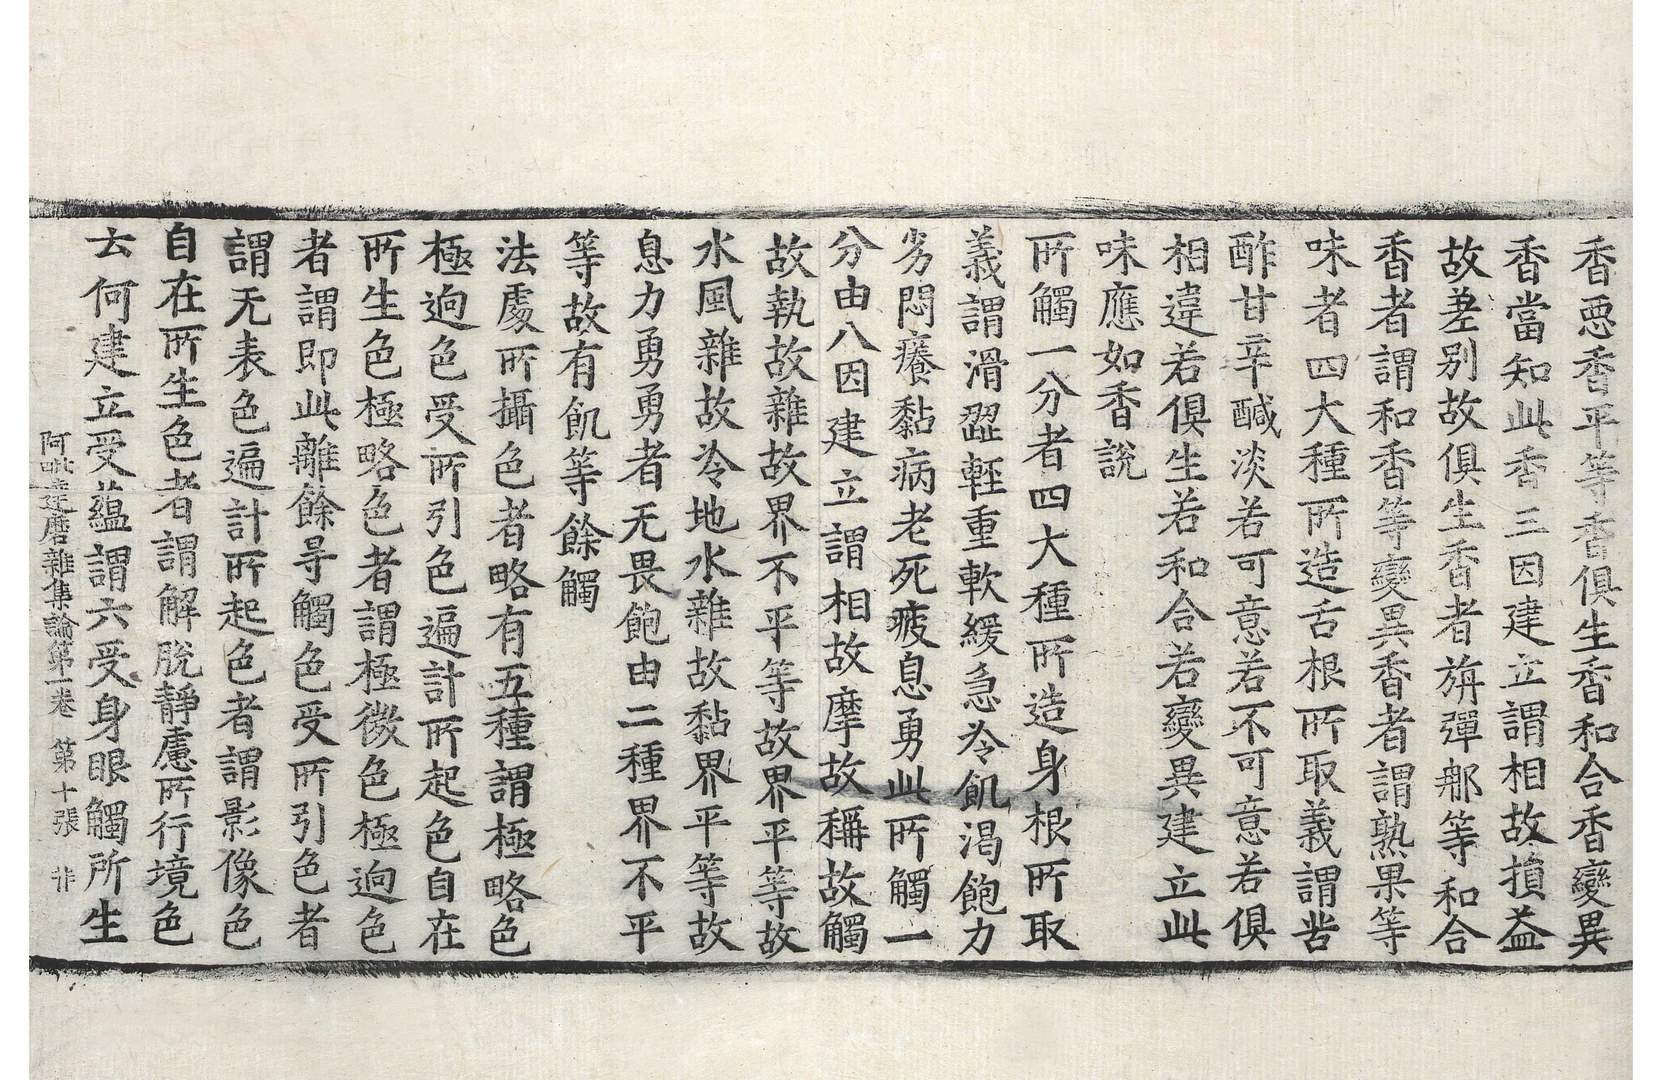 香惡香平等香俱生香和合香變異
香當知此香三因建立謂相故損益
故差别故俱生香者旃彈那等和合
香者謂和香等變異香者謂熟果等
味者四大種所造舌根所取義謂苦
酢甘辛醎淡若可意若不可意若俱
相違若俱生若和合若變異建立此
味應如香說
所觸一分者四大種所造身根所取
義謂滑澀輕重軟緩急冷飢渴飽力
劣悶癢黏病老死疲息勇此所觸一
分由八因建立謂相故摩故稱故觸
故執故雜故界不平等故界平等故
水風雜故冷地水雜故黏界平等故
息力勇勇者无畏飽由二種界不平
等故有飢等餘觸
法處所攝色者略有五種謂極略色
極逈色受所引色遍計所起色自在
所生色極略色者謂極微色極逈色
者謂即此離餘㝵觸色受所引色者
謂无表色遍計所起色者謂影像色
自在所生色者謂解脫靜慮所行境色
云何建立受蘊謂六受身眼觸所生
阿毗達磨雜集論第一卷 第十張 非